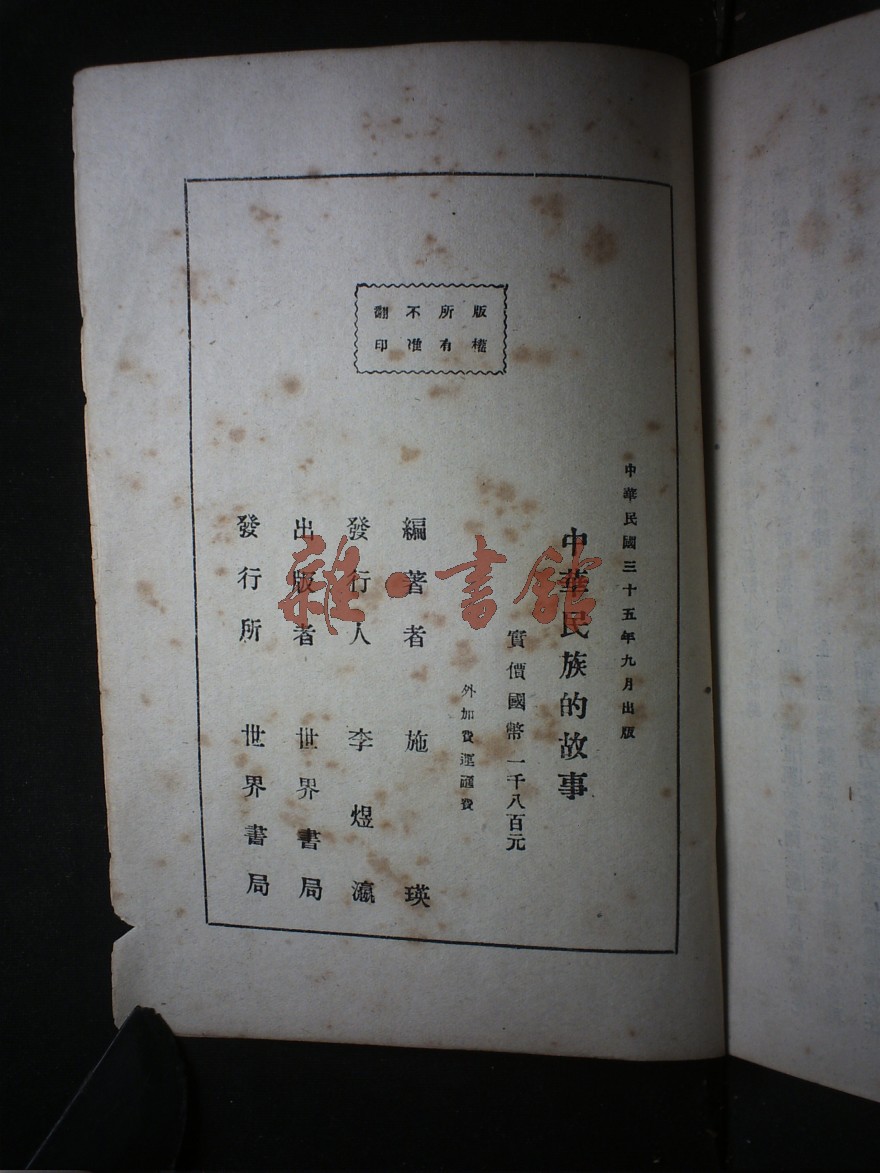 中華民國三十五年九月出版
中華民族的故事
實價國幣一千八百元
外加費運匯費
編著者 施瑛
發行人 李煜瀛
出版者 世界書局
發行所 世界書局
版權
所有
不准
翻印
雜·書館